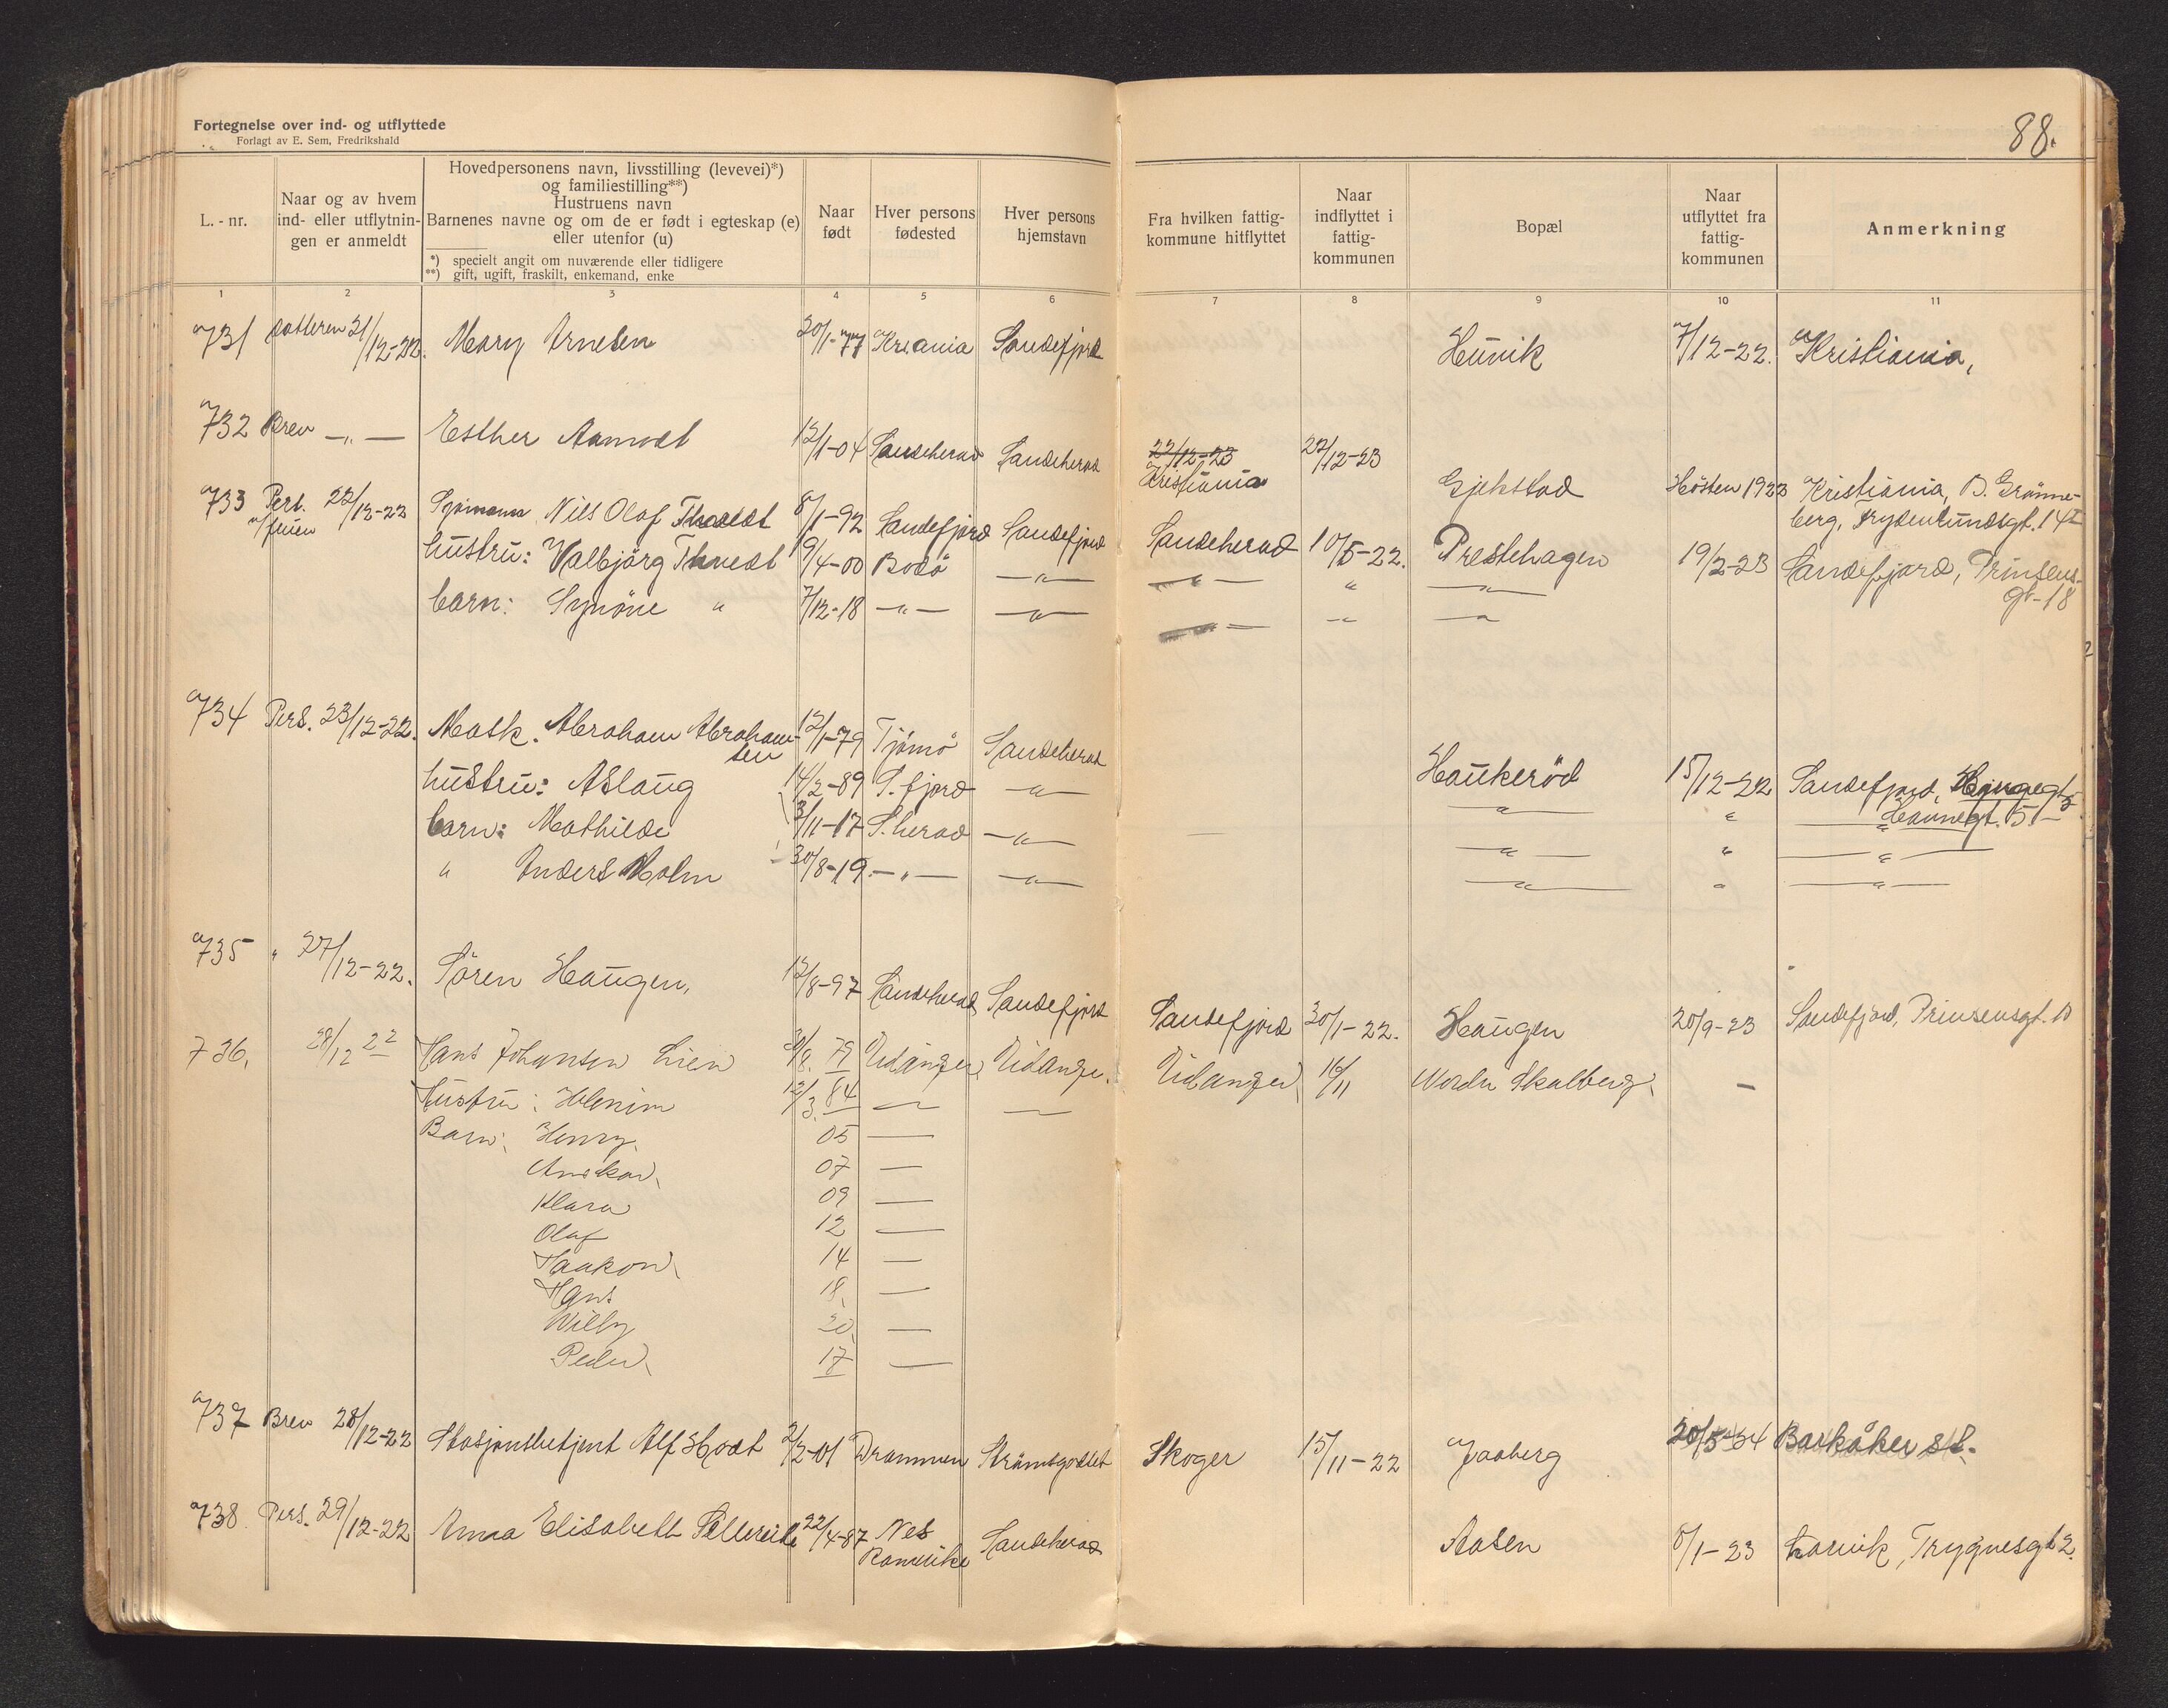 Fortegnelse over ind- og utflyttede
Forlagt av E. Sem, Fredrikshald
88.
L. - nr.
Naar og av hvem
ind- eller utflytnin-
gen er anmeldt
Hovedpersonens navn, livsstilling (levevei)*)
og familiestilling**)
Hustruens navn
Barnenes navne og om de er født i egteskap (e)
eller utenfor (u)
*) specielt angit om nuværende eller tidligere
**) gift, ugift, fraskilt, enkemand, enke
Naar
født
Hver persons
fødested
Hver persons
hjemstavn
Fra hvilken fattig-
kommune hitflyttet
Naar
indflyttet i
fattig-
kommunen
Bopæl
Naar
utflyttet fra
fattig-
kommunen
Anmerkning
1 2 3 4 5 6 7 8 9 10 11
731 datteren 21/12-22. Mary Arnesen 20/1-77 Kr.ania Sandefjord Hunik 7/12-22. Kristiania,
732 Brev -„- Esther Aamodt 12/1-04 Sandeherad Sandeherad 22/12-23 27/12-23
Kristiania Gjekstad Høsten 1922 Kristiania, B. Grønne-
berg, Frydenlundsgt. 14 I
733 Pers. 22/12-22 Sjömann Nils Olaf 8/1-92 Sandefjord Sandefjord Sandeherad 10/5-22. Prestehagen 19/2-23 Sandefjord, Prinsens-
gt-18
v/ fruen
hustru: Valbjörg 9/4-00 Bodö -„- -„- „ -„-
barn: Synöve „ 7/12-18 -„- -„- -„- -„- -„-
734 Pers. 23/12-22. Mask. Abraham Abraham-
sen 12/1-79 Tjømø Sandeherad Haukeröd 15/12-22 Sandefjord, Haugegt 5
hustru: Aslaug 14/2-89 S.fjord -„- -„- „ -„- gt. 5
barn: Mathilde 3/11-17 S.herad -„- -„- „ -„-
„ Anders Holm 30/8-19 -„- -„- -„- „ -„-
735 „ 27/12-22. Sören Haugen, 12/8-97 Sandeherad Sandefjord Sandefjord 30/1-22. Haugen 20/9-23 Sandefjord, Prinsensgt. 10
736, 28/12 22 Hans Johansen Lien 79 Eidanger Eidanger Eidanger 16/11 Nordre Skalberg -
Hustru: 12/3. 84 - -
Barn: Henry. 05 -
07 -
Klara 09 -
Olaf 12 -
Haakon 14 -
Hans 18. -
Willy 20 -
Peder 17 -
737 Brev 28/12-22 Stasjonsbetjent Alf Hodt 2/2-01 Drammen Strömsgodset Skoger 15/11-22 Jaaberg 20/5-34 Barkåker st.
738 Pers. 29/12-22 Anna Elisabeth 22/4-87 Nes
Romerike Sandeherad Aasen 8/1-23 Larvik, Trygvesgt 2.